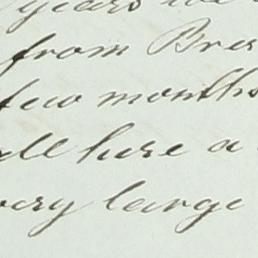 years
from Bres
few months
hire a
very large